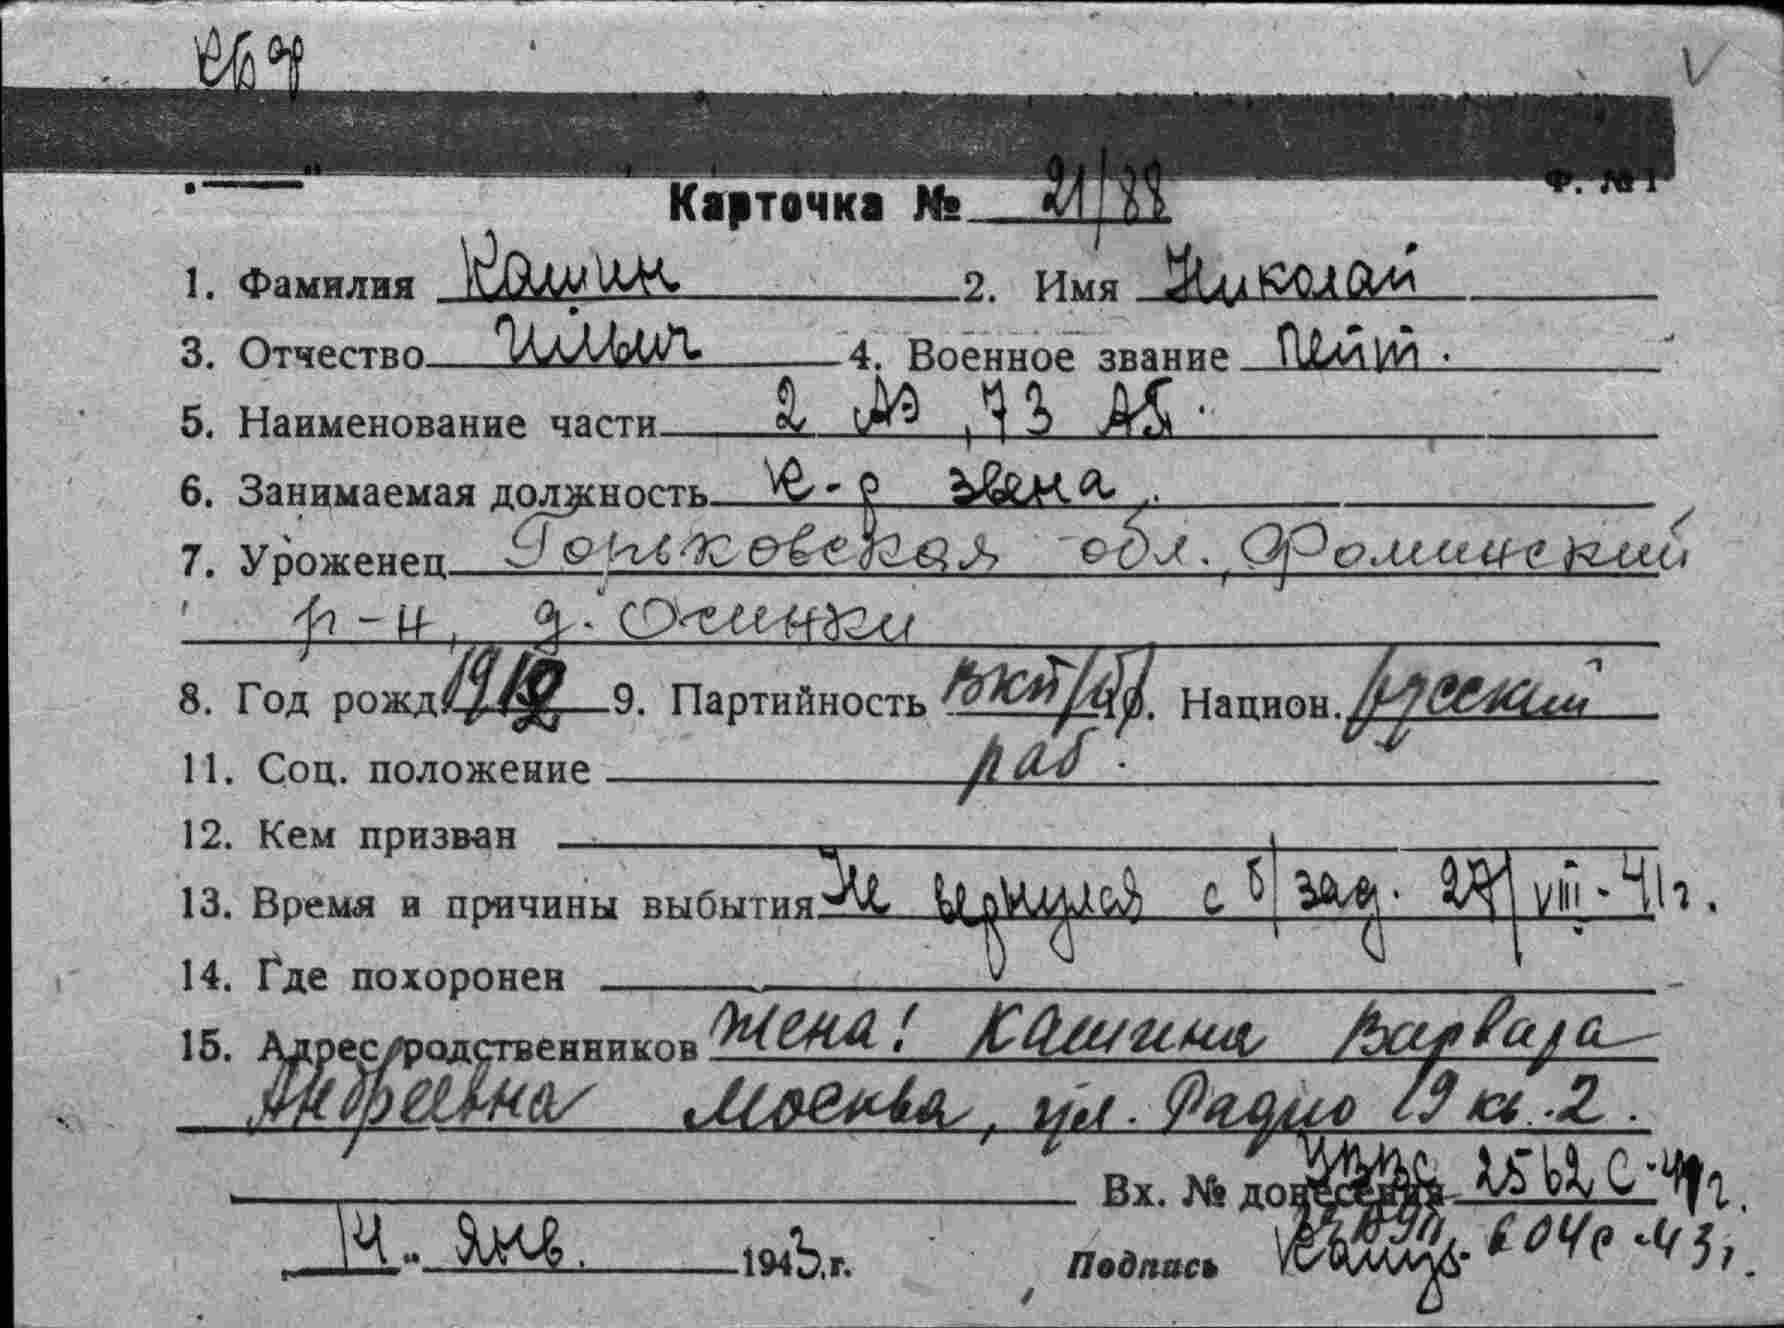 Ф. № 1
Карточка № 21/88
1. Фамилия Кашин 2. Имя Николай
3. Отчество Ильич 4. Военное звание лейт.
5. Наименование части 2 АЭ, 73 АП.
6. Занимаемая должность к-р звена.
7. Уроженец Горьковская обл., Фоминский
р-н, д. Осинки
8. Год рожд. 1912 9. Партийность ВКП/б/. Национ. русский
11. Соц. положение раб.
12. Кем призван
13. Время и причины выбытия Не вернулся с б/зад. 27/VIII-41г.
14. Где похоронен
15. Адрес родственников Жена! Кашина Варвара
Андреевна Москва, ул. Радио 19 кв. 2.
Вх. № донесения 2562 с-41г.
14 „ Янв. 1943 г. Подпись 604с-43г.